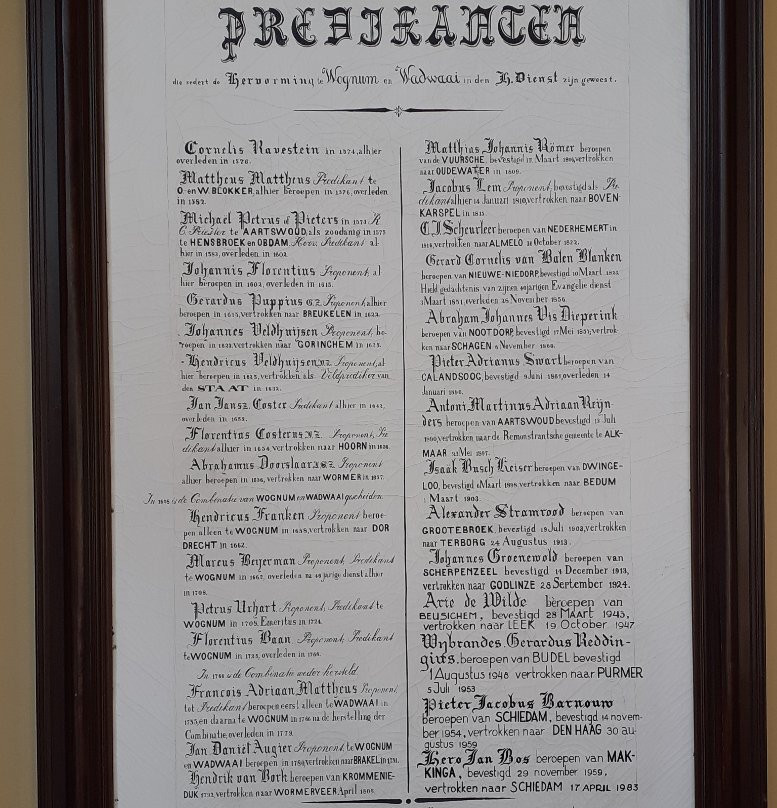 PREDIKANTEN
die sedert de Hervorming te Wognum en Wadwaai in den H. Dienst zijn geweest.
Cornelis Ravestein in 1574, alhier
overleden in 1576.
Mattheus Mattheus Predikant te
O. en W. BLOKKER, alhier beroepen in 1576, overleden
in 1582.
Michael Petrus of Pieters in
Priester te AARTSWOUD, als zoodanig in 1573
te HENSBROEK en OBDAM. Predikant al-
hier in 1583, overleden in 1602.
Johannis Florentius Proponent, al
hier beroepen in 1603, overleden in 1613.
Gerardus Puppius G.Z. Proponent, alhier
beroepen in 1613, vertrokken naar BREUKELEN in
Johannes Veldhuijsen Proponent, be-
roepen in 1623, vertrokken naar GORINCHEM in
Hendricus Veldhuijsen Proponent, al
hier beroepen in 1625, vertrokken als Veldprediker van
den STAAT in 1632.
Jan Jansz. Coster Predikant alhier in
overleden in 1653.
Florentius Costerus Proponent, Pre
dikant alhier in 1654, vertrokken naar HOORN in
Abrahamus Doorslaar Proponent
alhier beroepen in 1656, vertrokken naar WORMER in 1657.
In is de Combinatie van WOGNUM en WADWAAI gescheiden
Hendricus Franken Proponent beroe-
pen alleen te WOGNUM in 1658, vertrokken naar DOR
DRECHT in 1662.
Marcus Beijerman Proponent, Predikant
te WOGNUM in 1662, overleden na jarige dienst alhier
in 1706.
Petrus Urhart Proponent, Predikant te
WOGNUM in 1705. Emeritus in 1724.
Florentius Baan Proponent, Predikant
te WOGNUM in 1725, overleden in
In is de Combinatie weder hersteld.
Francois Adriaan Mattheus Proponent
tot Predikant beroepen eerst alleen te WADWAAI in
en daarna te WOGNUM in na de herstelling der
Combinatie, overleden in 1779.
Jan Daniel Augier Proponent te WOGNUM
en WADWAAI beroepen in vertrokken naar BRAKEL in
Hendrik van Bork beroepen van KROMMENIE-
DIJK vertrokken naar WORMERVEER April 1805.
Matthias Johannis Römer beroepen
van de VUURSCHE, bevestigd Maart vertrokken
naar OUDEWATER in 1809.
Jacobus Lem Proponent, bevestigd als Pre
dikant alhier 14 Januari 1810, vertrokken naar BOVEN-
KARSPEL in
C.J. Scheurleer beroepen van NEDERHEMERT in
vertrokken naar ALMELO October 1822.
Gerard Cornelis van Balen Blanken
beroepen van NIEUWE-NIEDORP, bevestigd Maart
Hield gedachtenis van zijnen jarigen Evangelie dienst
Maart 1851, overleden November 1856.
Abraham Johannes Vis Dieperink
beroepen van NOOTDORP, bevestigd 17 Mei vertrok-
ken naar SCHAGEN November
Pieter Adrianus Swart beroepen van
CALANDSOOG, bevestigd Juni overleden 14
Januari
Antoni Martinus Adriaan Reijn-
ders beroepen van AARTSWOUD bevestigd Juli
vertrokken naar de Remonstrantsche gemeente te ALK-
MAAR Mei
Isaak Busch Keiser beroepen van DWINGE-
LOO, bevestigd Maart vertrokken naar BEDUM
1 Maart 1903.
Alexander Stramrood beroepen van
GROOTEBROEK, bevestigd 19 Juli 1903, vertrokken
naar TERBORG 24 Augustus 1913.
Johannes Groenewold beroepen van
SCHERPENZEEL bevestigd 14 December 1913,
vertrokken naar GODLINZE 28 September 1924.
Arie de Wilde beroepen van
BEUSICHEM, bevestigd 28 MAART 1943,
vertrokken naar LEEK 19 October 1947
Wijbrandes Gerardus Reddin-
gius, beroepen van BUDEL bevestigd
1 Augustus 1948 vertrokken naar PURMER
5 Juli 1953
Pieter Jacobus Barnouw
beroepen van SCHIEDAM, bevestigd 14 novem-
ber 1954, vertrokken naar DEN HAAG 30 au-
gustus 1959
Hero Jan Bos beroepen van MAK-
KINGA, bevestigd 29 november 1959,
vertrokken naar SCHIEDAM 17 APRIL 1983